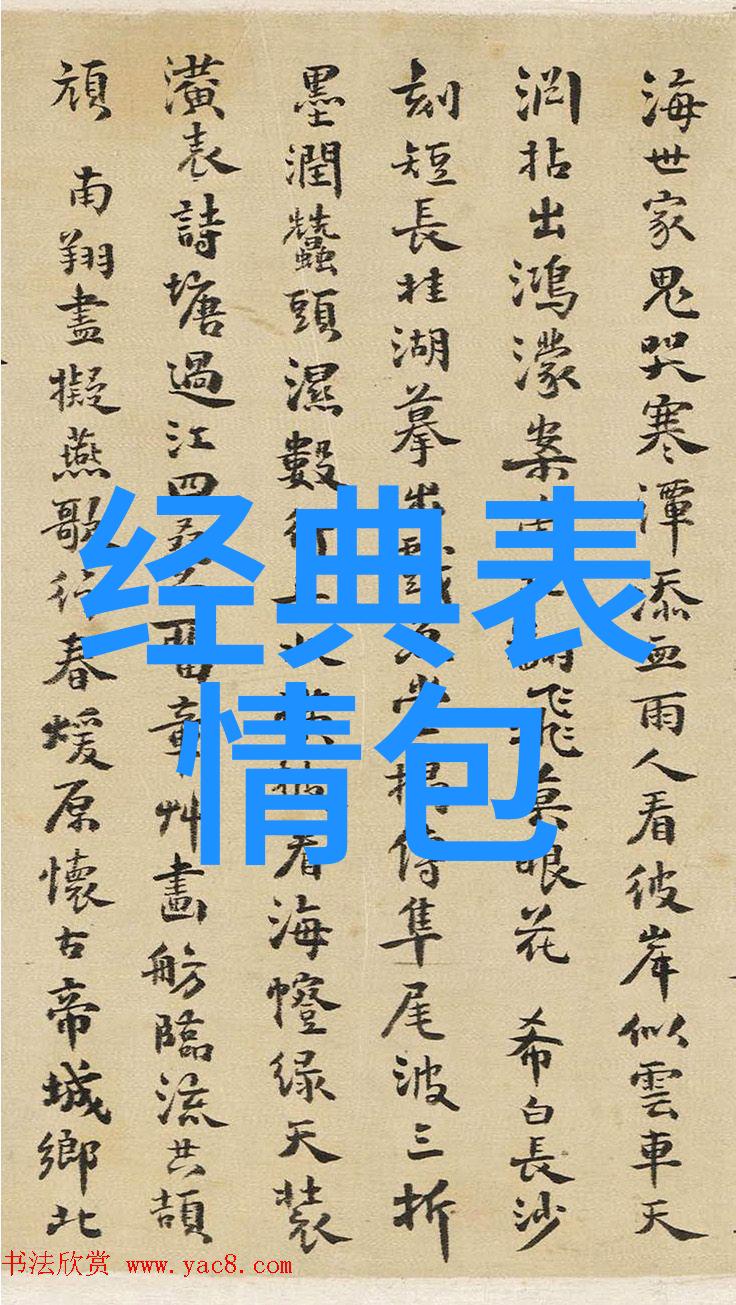 海世家鬼哭寒潭添血雨人看彼岸似雲車天
渊拈出鴻濛案飛莫眼花 希白長沙
刻短長桂湖摹隼尾波三折
墨潤蠶頭濕數行看海幢緑天装
潢表詩塘過江四章艸畫舫臨流共頡
頏 南翔盡擬燕歌行春煖原懷古帝城鄉北
经典表
情包
书法欣赏 www.yac8.com